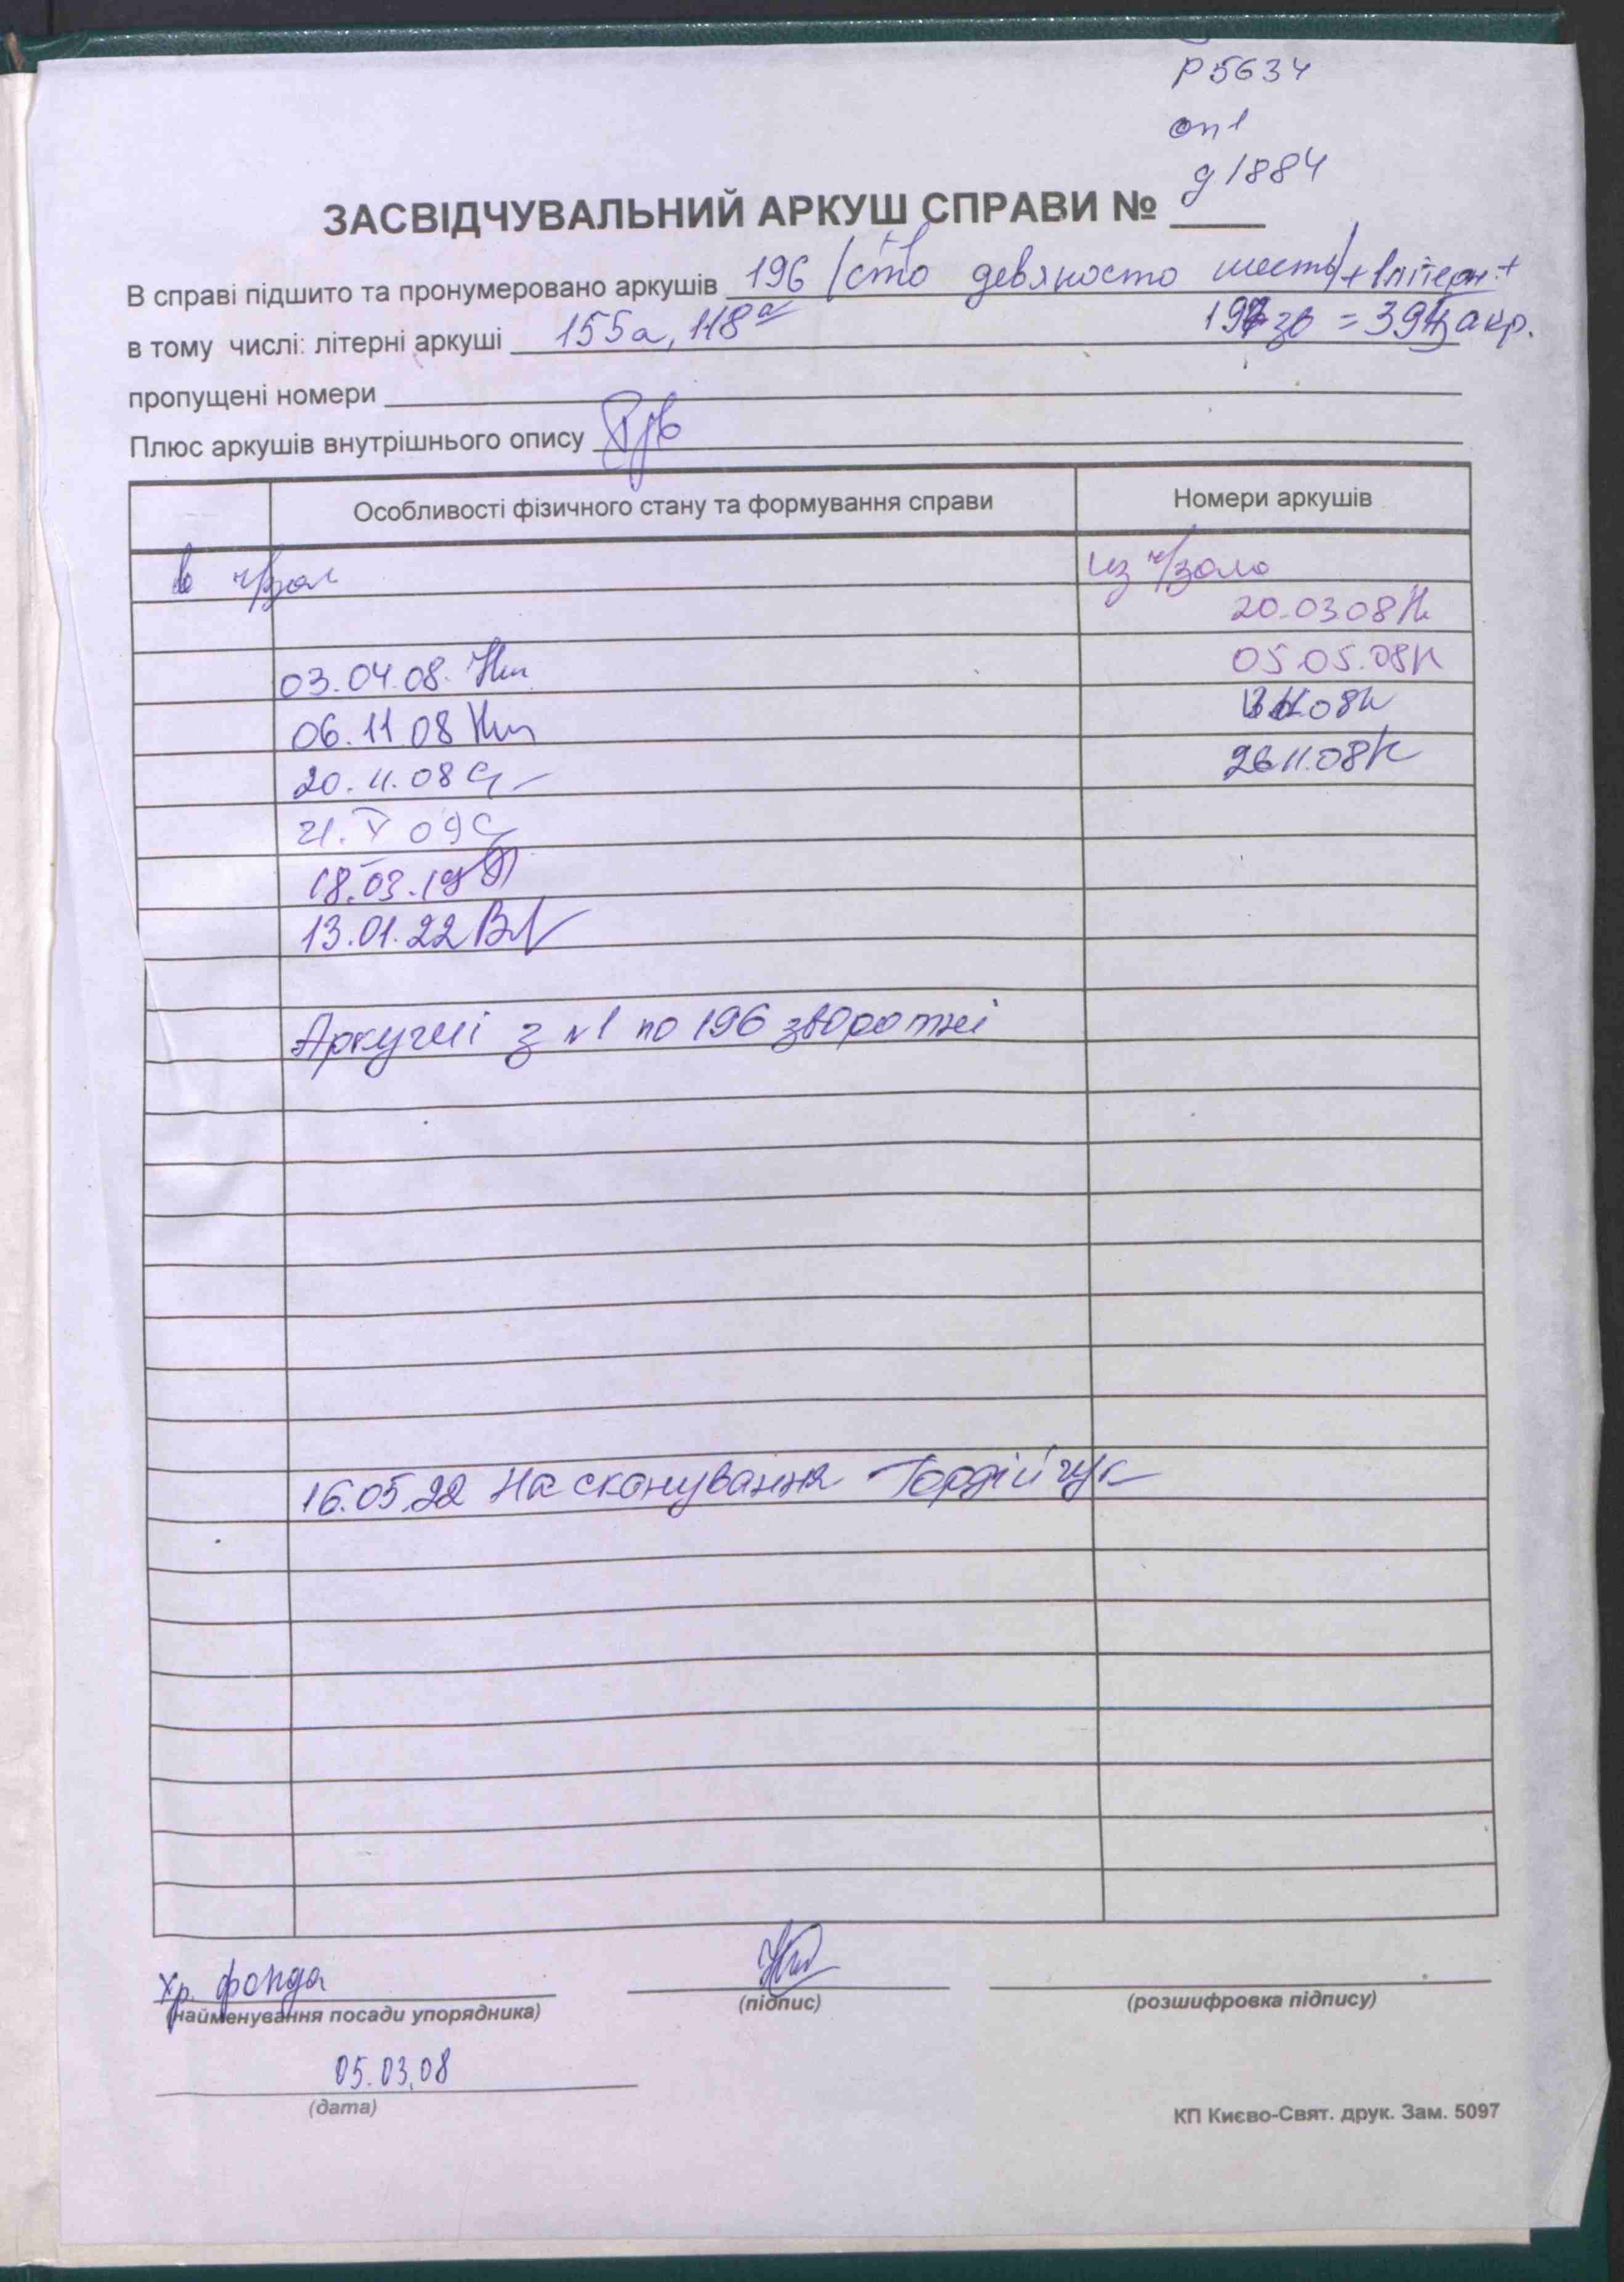 Р5634
оп 1
д 1884
ЗАСВІДЧУВАЛЬНИЙ АРКУШ СПРАВИ №
В справі підшито та пронумеровано аркушів 196 /сто девяносто шесть/ + 1 літерн. +
в тому числі: літерні аркуші 155а, 118а = 394 акр.
пропущені номери
Плюс аркушів внутрішнього опису
Особливості фізичного стану та формування справи Номери аркушів
в ч/зал из ч/зала
20.03.08
03.04.08. 05.05.08
06.11.08
20.11.08 26.11.08
21.V 09
18.03.19
13.01.22
Аркуші з №1 по 196 зворотні
16.05.22 На сканування Гордійчук
Хр. фонда
(найменування посади упорядника) (підпис) (розшифровка підпису)
05.03.08
(дата)
КП Києво-Свят. друк. Зам. 5097